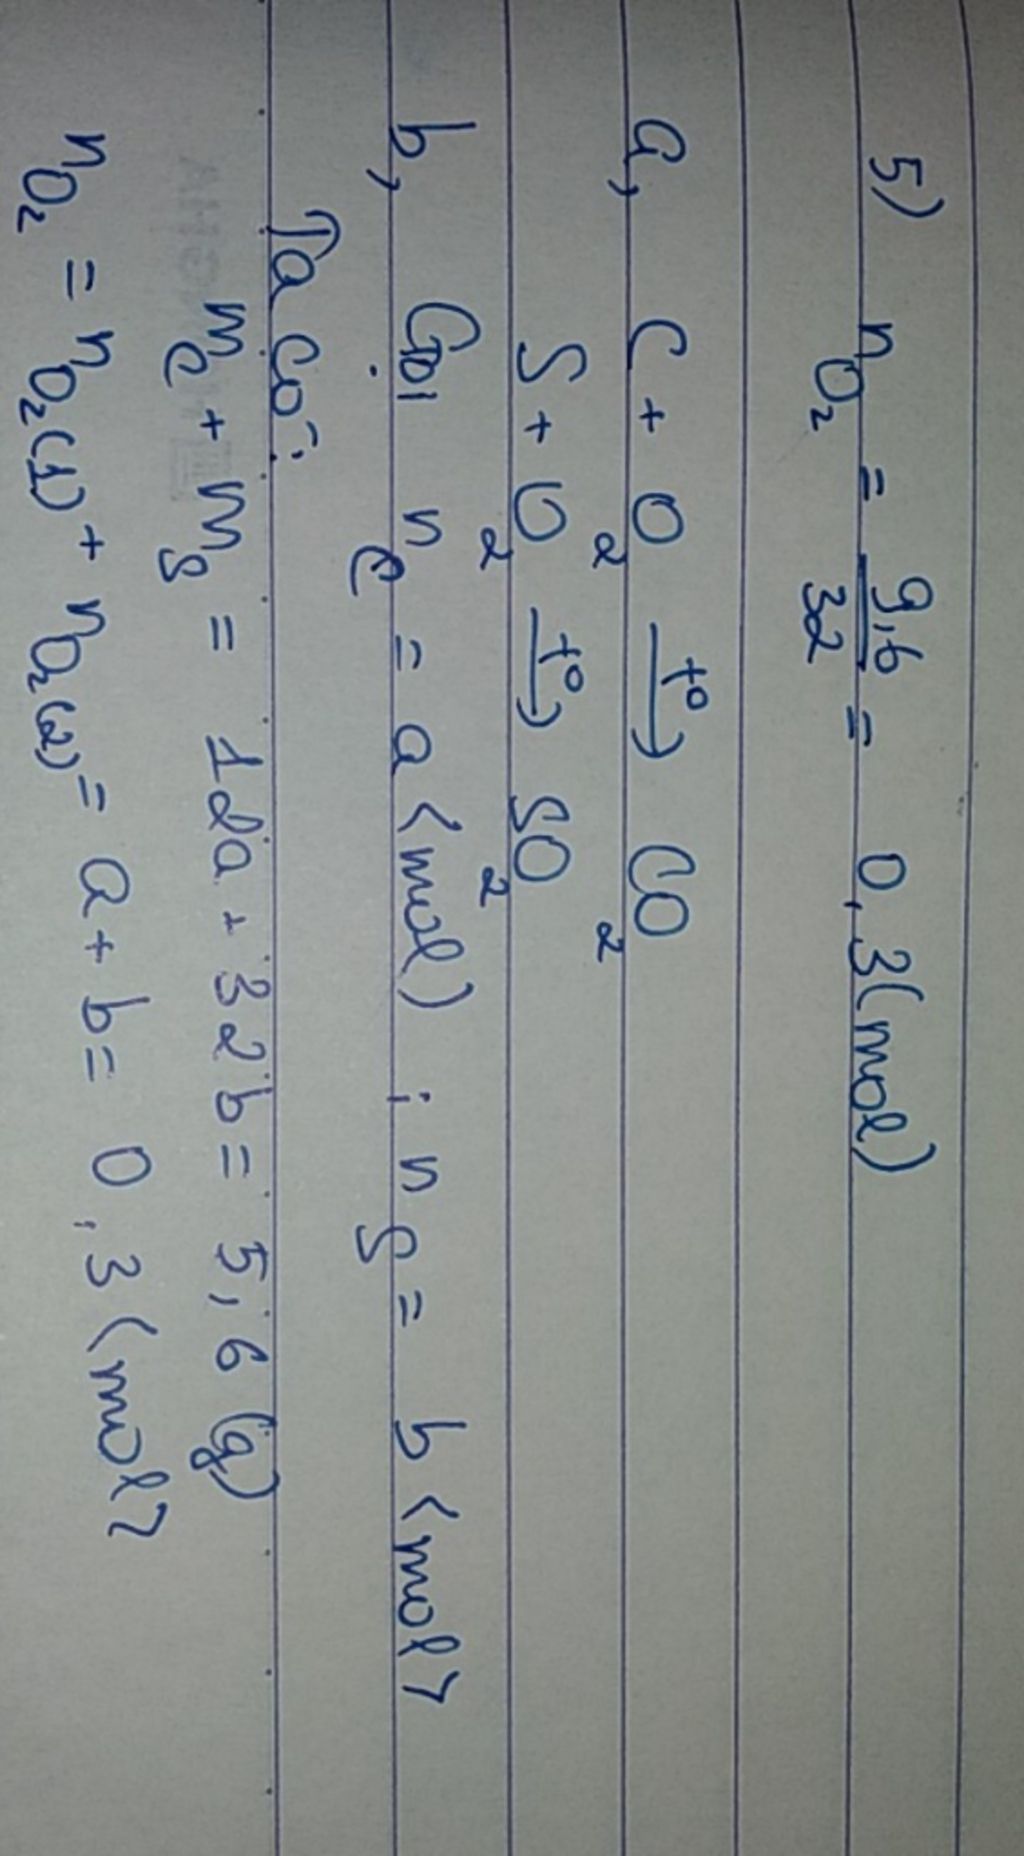 5) nO2 = 9,6/32 = 0,3(mol)
a, C + O2 t°→ CO2
S + O2 t°→ SO2
b, Gọi nC = a <mol) ; nS = b <mol>
Ta có:
mC + mS = 12a + 32b = 5,6 (g)
nO2 = nO2(1) + nO2(2) = a + b = 0,3 (mol>